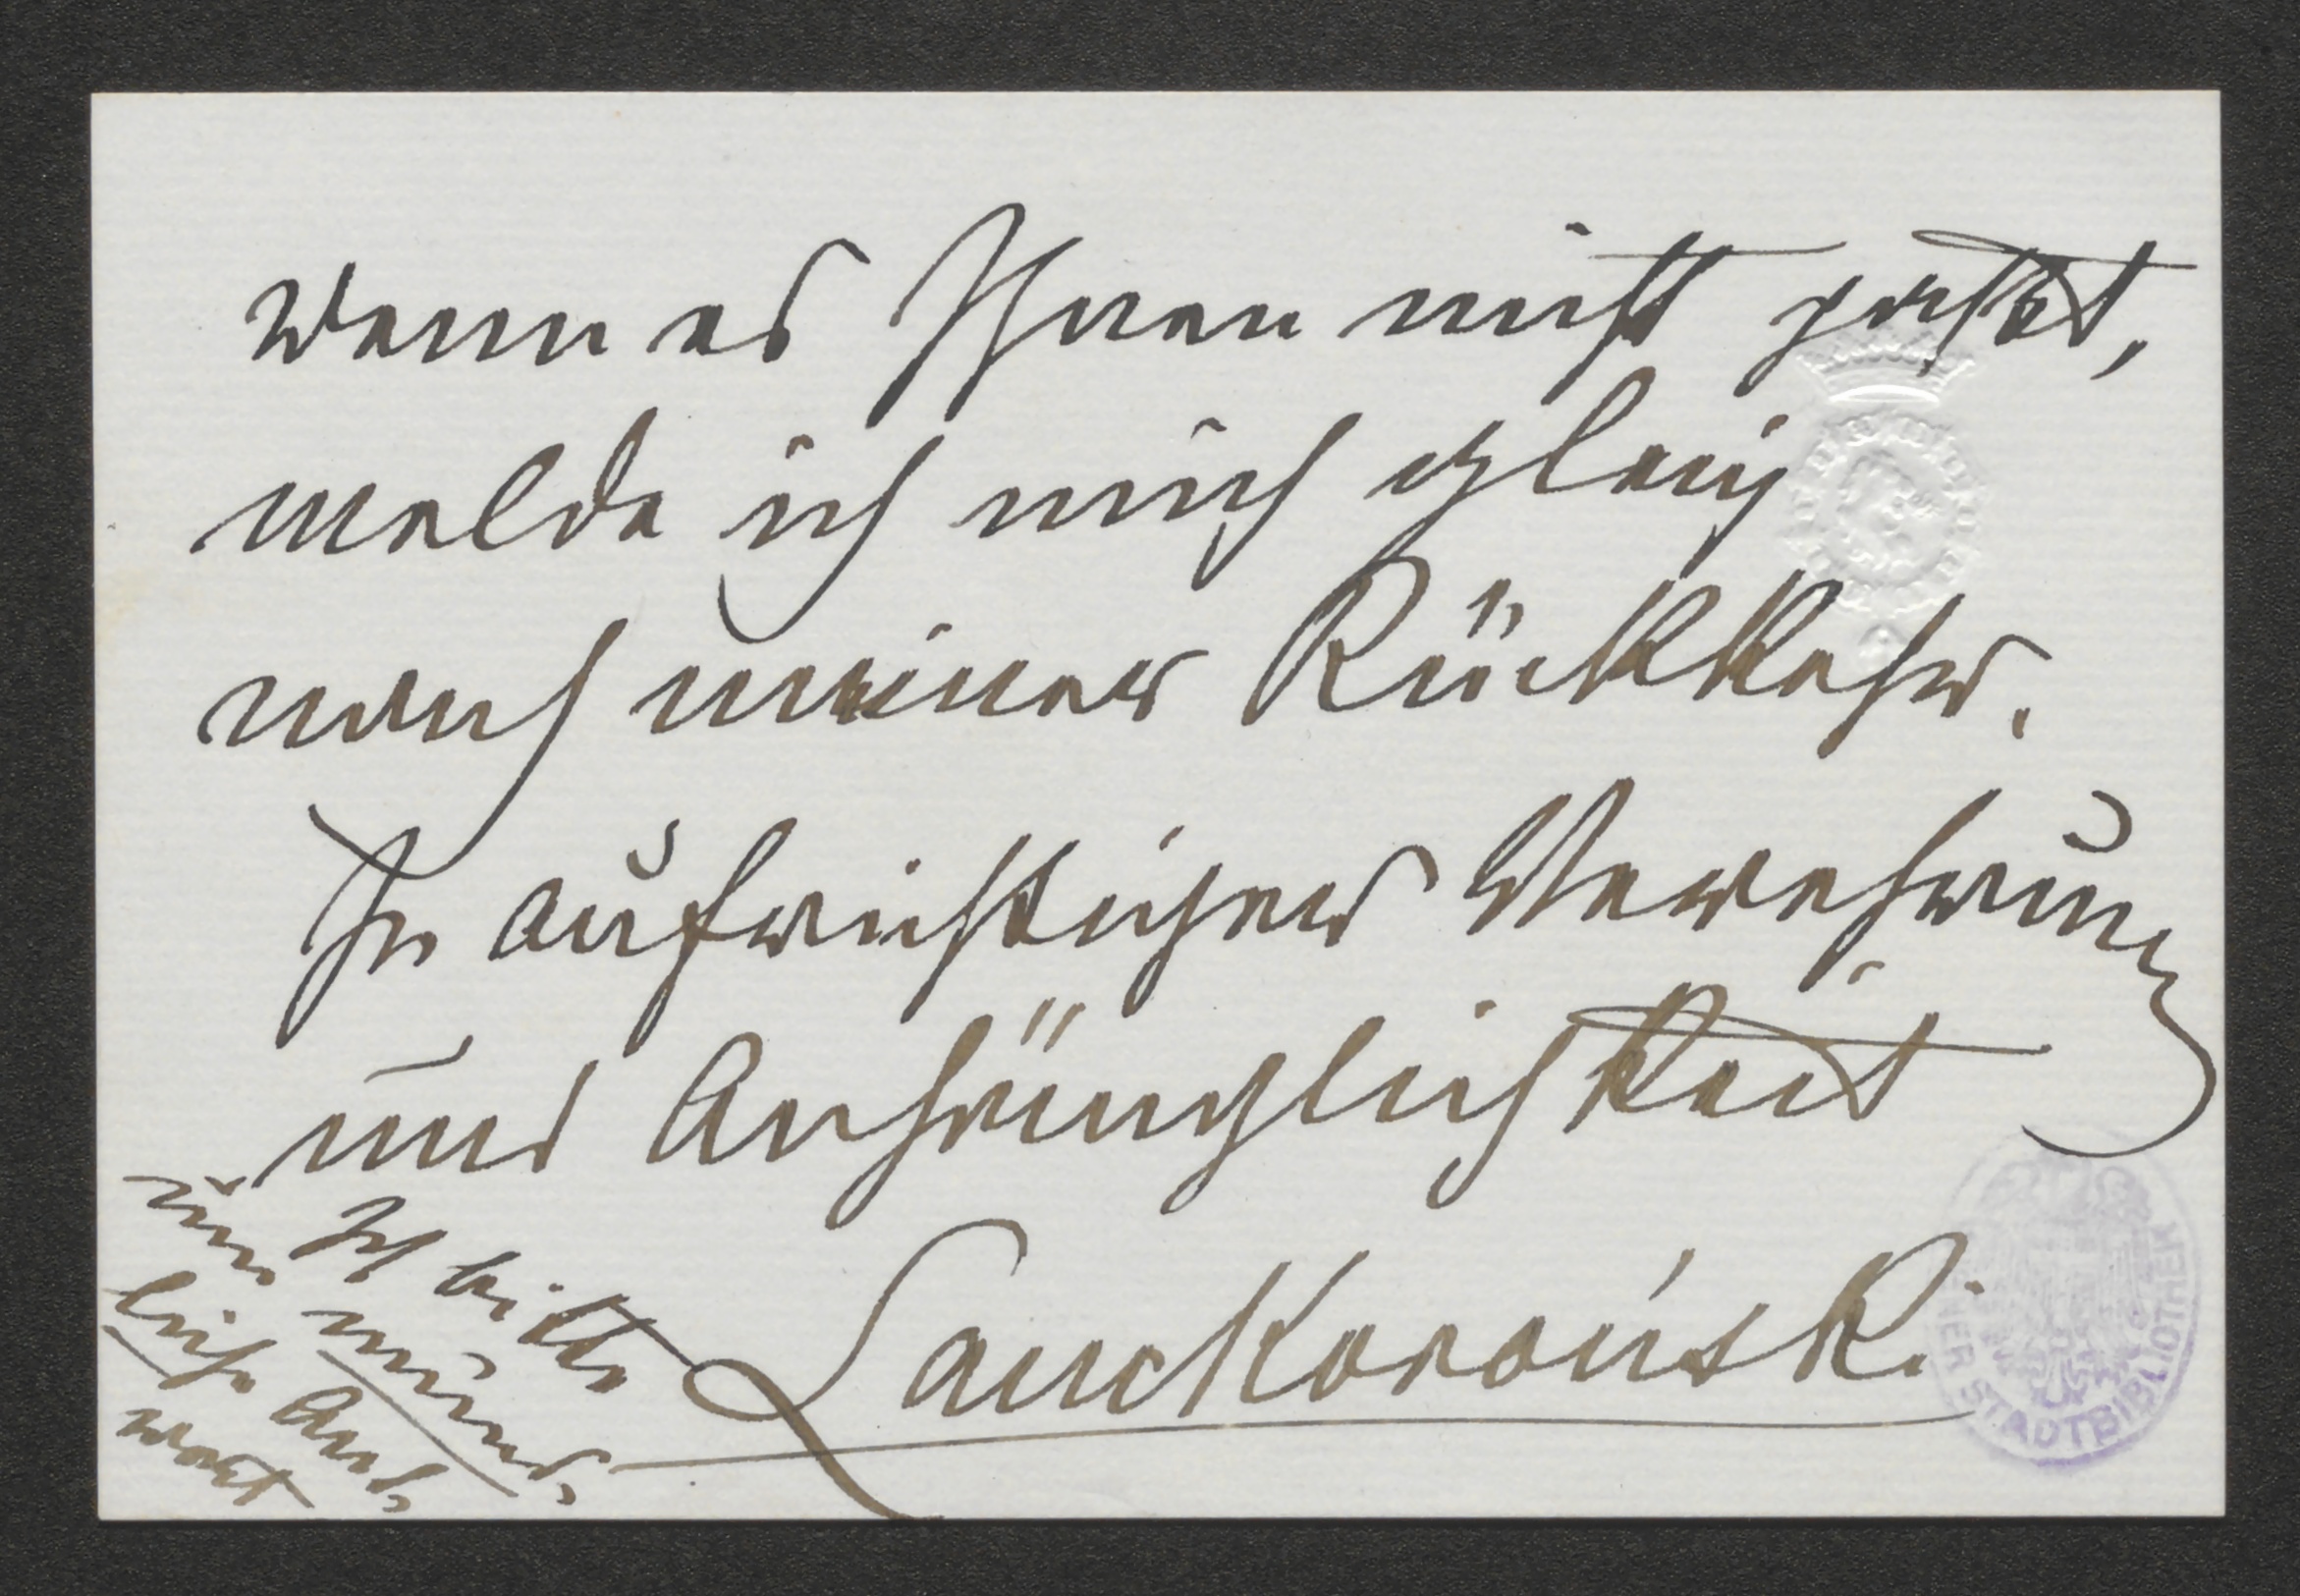 Wenn es Ihnen nicht paßt,
melde ich mich gleich
nach meiner Rückkehr.
In aufrichtiger Verehrung
und Anhänglichkeit
Lanckoroński
Ich bitte
um münd-
liche Ant-
wort
STADTBIBLIOTHEK